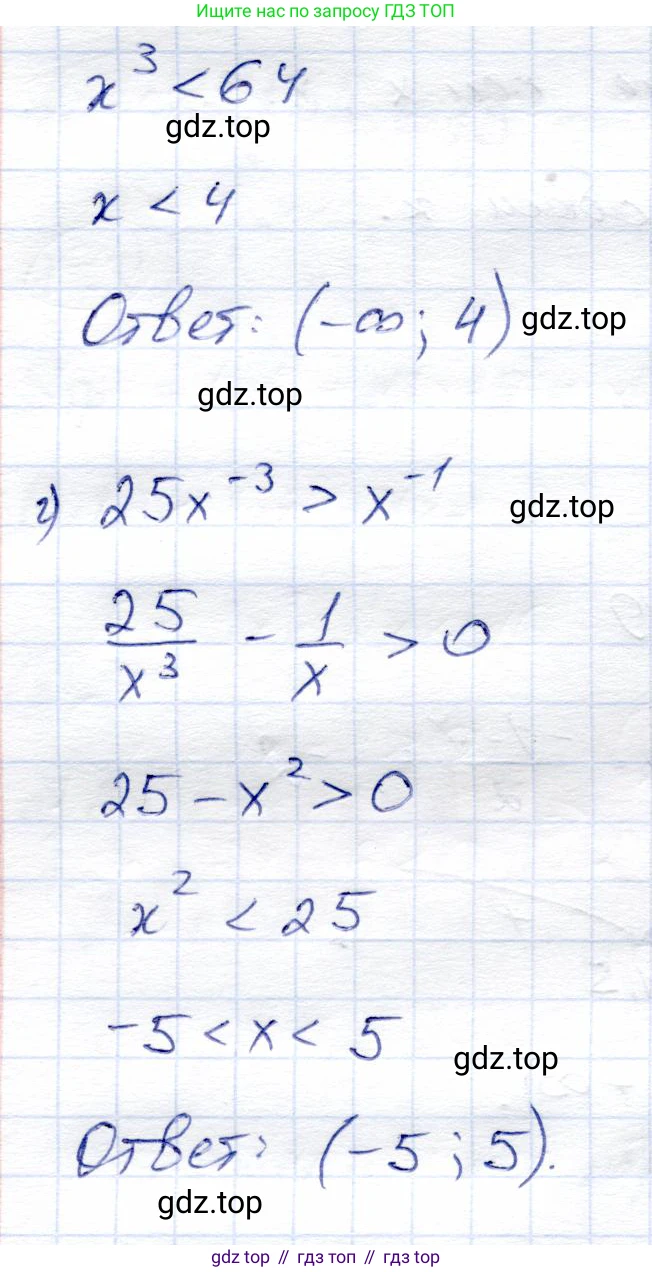 Ищите нас по запросу ГДЗ ТОП
x³ < 64
gdz.top
x < 4
Ответ: (-∞; 4) gdz.top
gdz.top
г) 25x⁻³ > x⁻¹ gdz.top
25/x³ - 1/x > 0
25 - x² > 0
x² < 25
-5 < x < 5 gdz.top
Ответ: (-5; 5).
gdz.top
gdz top // гдз топ // гдз top